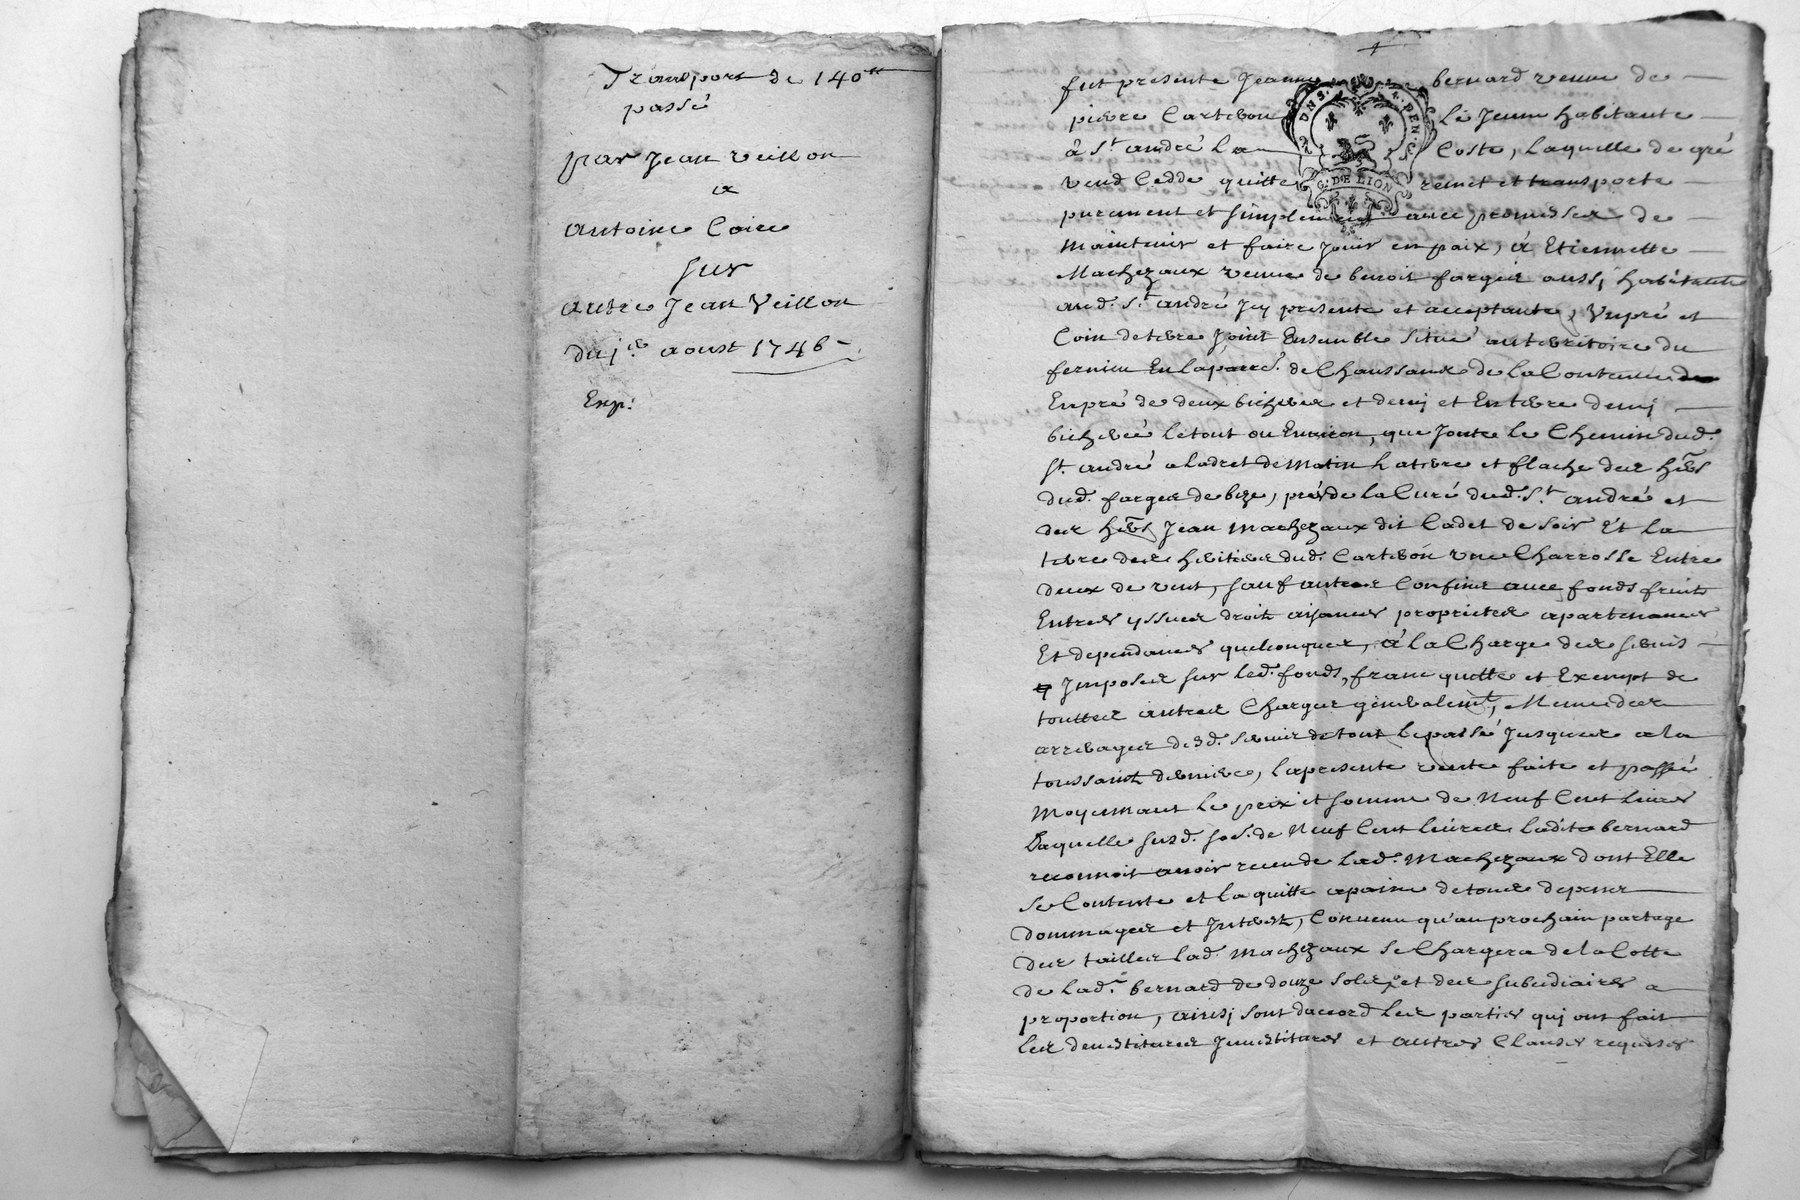 Transport de 140ᵗᵗ
passé
par Jean Veillon
a
antoine Coire
sur
autre Jean Veillon
du j.er aoust 1746
Exp.
fut presente Jeanne bernard veuue de
pierre Carteron Le Jeune habitante
à St. andré La Coste, Laquelle de gré
vend Cedde quitte remet et transporte
purement et simplement auec promesses de
maintenir et faire Jouir en paix, à Etiennette
Machezaux veuue de benoit farges aussj habitante
aud. St. andré Jcy presente et acceptante, Vn pré et
Coin de terre Joint Ensemble Situé au territoire du
fernieu En la parr.e de Chaussans de la Contenue
En pré de deux bicherées et demj et En terre demj
bicherée le tout ou Enuiron, que Joute le Chemin dud.
St. andré a ladret de matin La terre et flache des hers
dud. farges de bize, prés de la Cure dud. St. andré et
des hers Jean Machezaux dit Cadet de soir Et La
terre des heritiers dud. Carteron vne Charrosse Entre
deux de vent, sauf autres Confins auec fonds fruits
Entrées yssues droits aisances proprietés apartenances
Et dependances quelconques, à la Charge des seruis
Jmposés sur led. fonds, franc quitte et Exempt de
touttes autres Charges generalemt, Memes des
arrerages desd. seruis de tout le passé Jusques a la
toussaint derniere, la presente vente faite et passée
moyennant le prix et somme de Neuf Cent liures
Laquelle susd. so.e de Neuf Cent liures ladite bernard
reconnoit auoir receu de lad. Machezaux dont Elle
se Contente et la quitte a peine de tous depens
dommages et Jnterets, Conuenu qu'au prochain partage
des tailles lad. Machezaux se Chargera de la Cotte
de lad.e bernard de douze sols, et des subsidiaires a
proportion, ainsj sont daccord les parties quj ont fait
les deuestitures Jnuestitures et autres Clauses requises
2 SOLS. 4. DEN.
G. DE LION